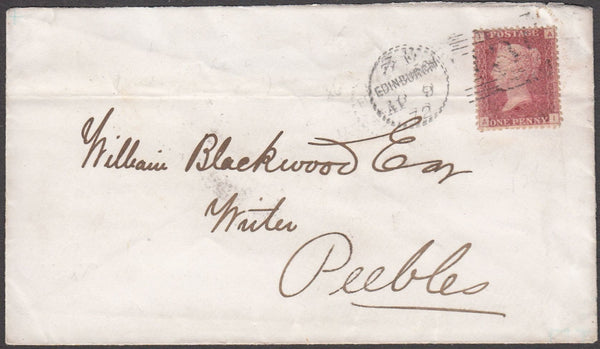 POSTAGE
ONE PENNY
EDINBURGH
AP 9
William Blackwood Esq
Writer
Peebles